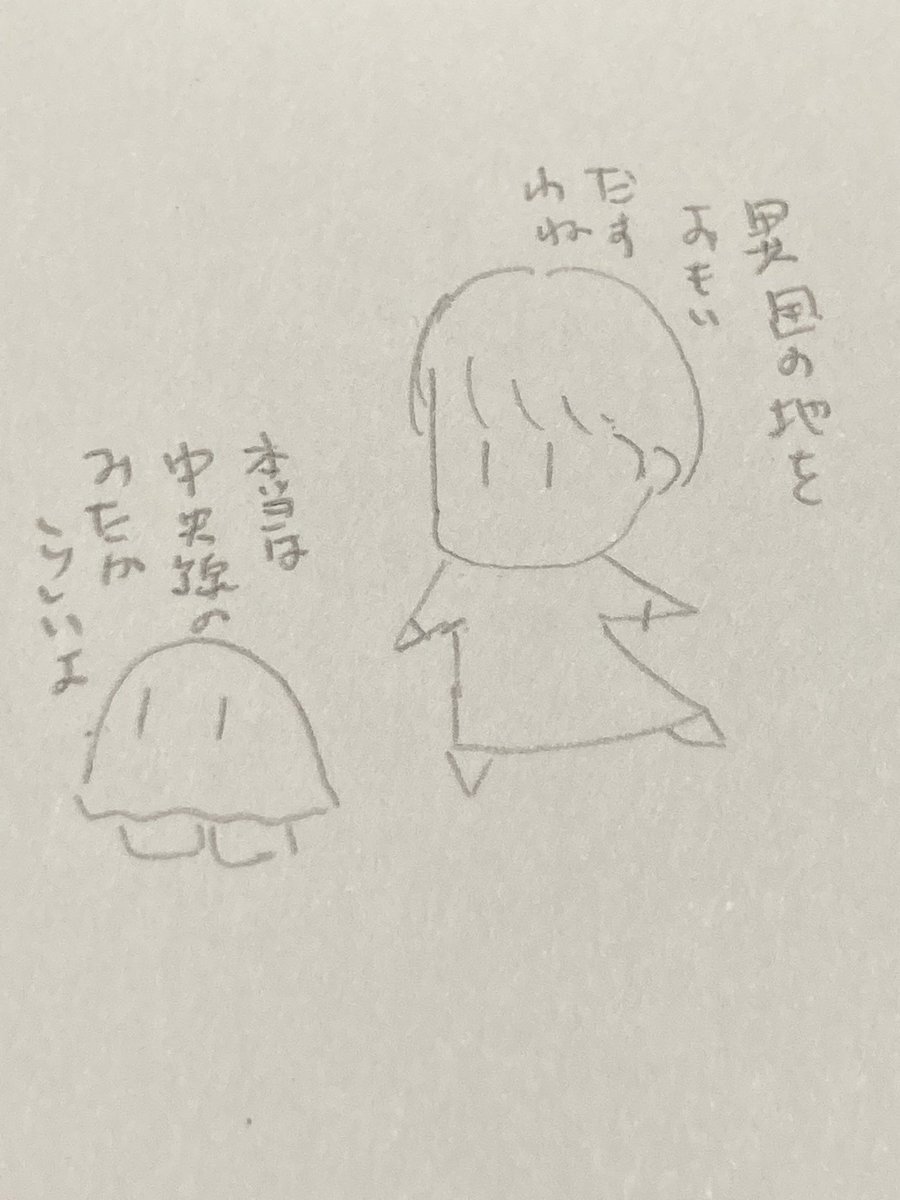 異国の地を
おもい
だす
わね
本当は
中央線の
みたか
くらいよ